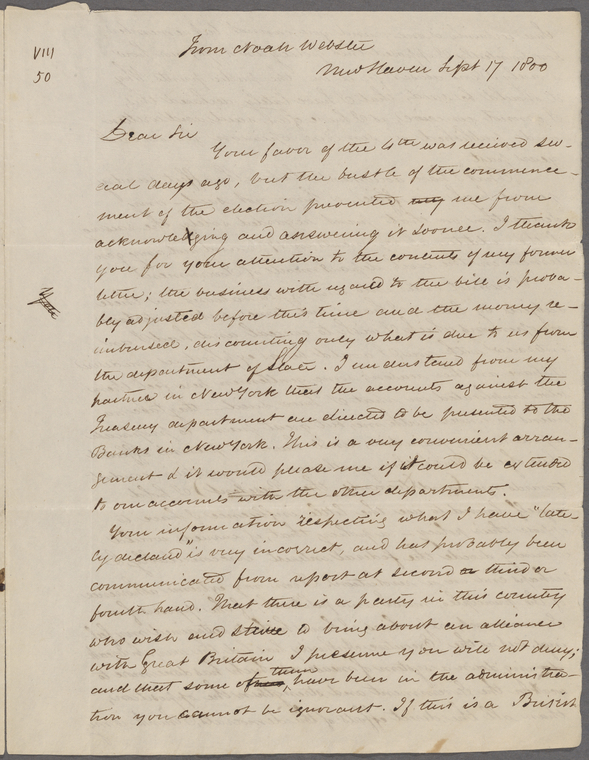 VIII
50
From Noah Webster
New Haven Sept 17 1800
Dear Sir
Your favor of the 4th was received sev-
eral days ago, but the bustle of the commence-
ment & the election prevented my me from
acknowledging and answering it sooner. I thank
you for your attention to the contents of my former
letter; the business with regard to the bill is proba-
bly adjusted before this time and the money re-
imbursed, discounting only what is due to us from
the department of State. I understand from my
partner in New York that the accounts against the
Treasury department are directed to be presented to the
Banks in New York. This is a very convenient arran-
gement & it would please me if it could be extended
to our accounts with the other departments.
Your information respecting what I have "late-
ly declared" is very incorrect, and has probably been
communicated from report at second or third or
fourth hand. That there is a party in this country
who wish and strive to bring about an alliance
with Great Britain I presume you will not deny;
and that some of them, have been in the administra-
tion you cannot be ignorant. If this is a British